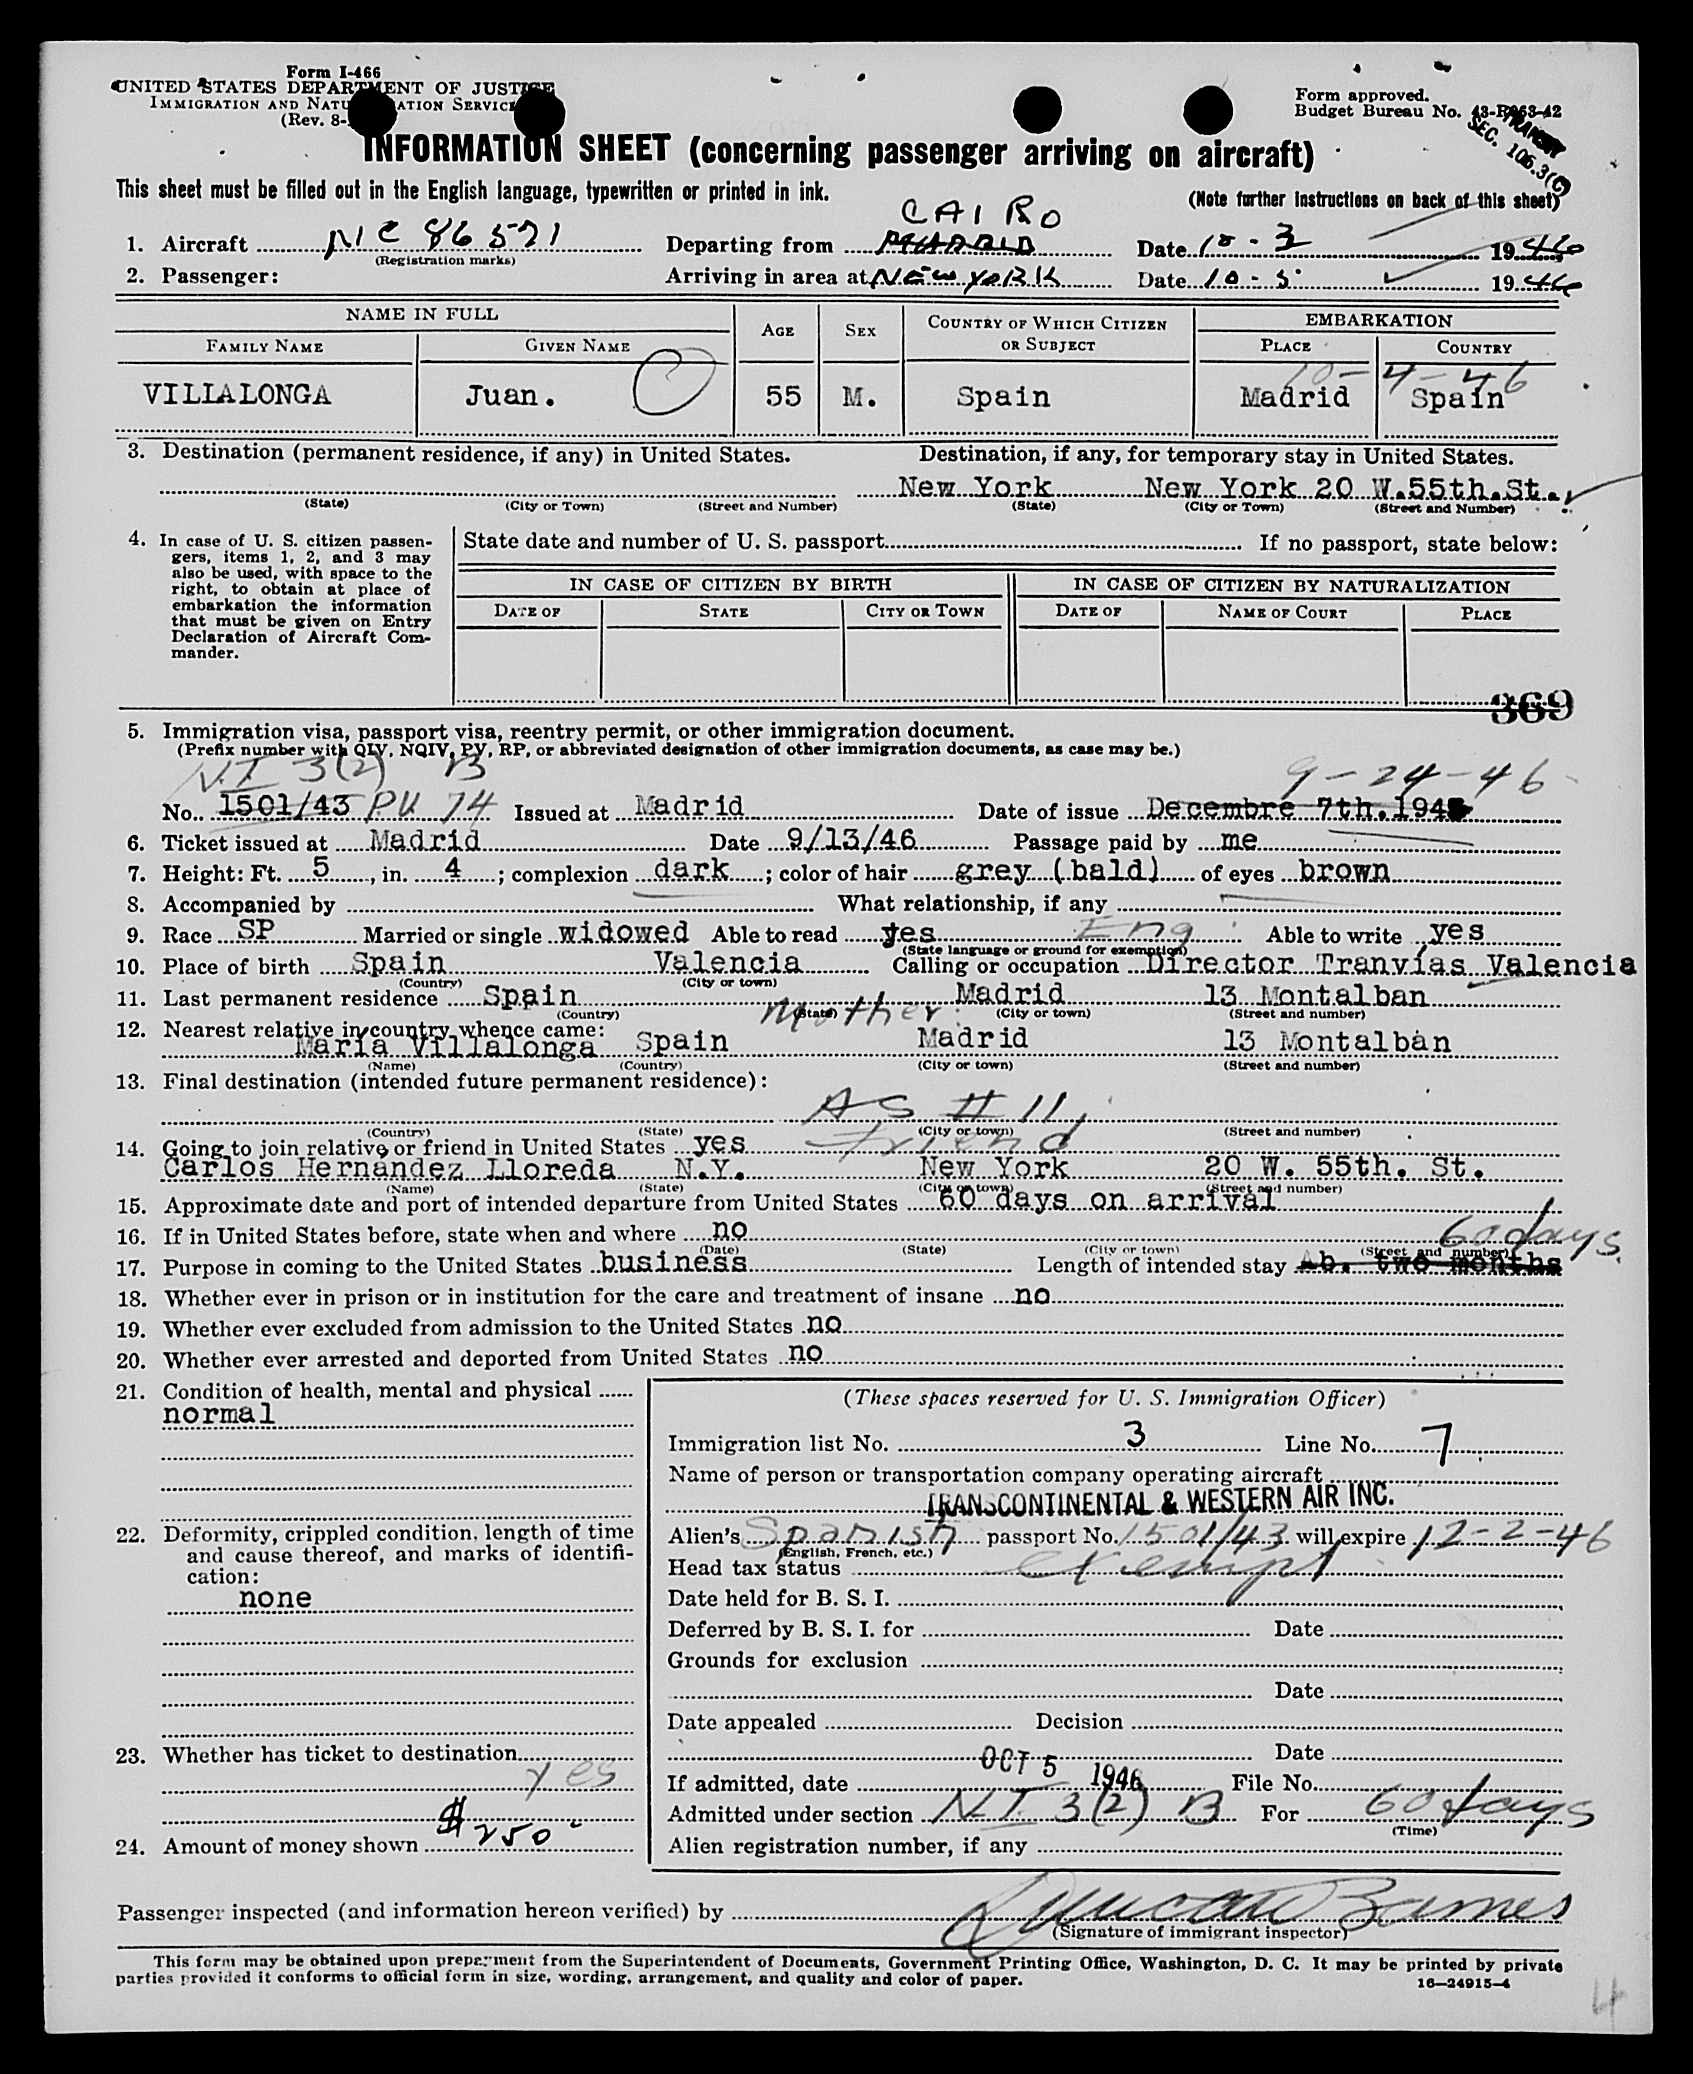 Form I-466
UNITED STATES DEPARTMENT OF JUSTICE
IMMIGRATION AND NATURALIZATION SERVICE
(Rev. 8-
Form approved.
Budget Bureau No. 43-R063-42
SEC. 106.3(C)
INFORMATION SHEET (concerning passenger arriving on aircraft)
This sheet must be filled out in the English language, typewritten or printed in ink.
(Note further instructions on back of this sheet)
CAIRO
1. Aircraft NC 86571 Departing from MADRID Date 10-3 1946
(Registration marks)
2. Passenger: Arriving in area at NEW YORK Date 10-5 1946
NAME IN FULL AGE SEX COUNTRY OF WHICH CITIZEN OR SUBJECT EMBARKATION
FAMILY NAME GIVEN NAME PLACE COUNTRY
10-4-46
VILLALONGA Juan. 55 M. Spain Madrid Spain
3. Destination (permanent residence, if any) in United States. Destination, if any, for temporary stay in United States.
New York New York 20 W.55th.St.
(State) (City or Town) (Street and Number) (State) (City or Town) (Street and Number)
4. In case of U. S. citizen passen-
gers, items 1, 2, and 3 may
also be used, with space to the
right, to obtain at place of
embarkation the information
that must be given on Entry
Declaration of Aircraft Com-
mander.
State date and number of U. S. passport If no passport, state below:
IN CASE OF CITIZEN BY BIRTH IN CASE OF CITIZEN BY NATURALIZATION
DATE OF STATE CITY OR TOWN DATE OF NAME OF COURT PLACE
369
5. Immigration visa, passport visa, reentry permit, or other immigration document.
(Prefix number with QIV, NQIV, PV, RP, or abbreviated designation of other immigration documents, as case may be.)
N.I. 3(2) B 9-24-46
No. 1501/43 PV 74 Issued at Madrid Date of issue Decembre 7th.194
6. Ticket issued at Madrid Date 9/13/46 Passage paid by me
7. Height: Ft. 5, in. 4; complexion dark; color of hair grey (bald) of eyes brown
8. Accompanied by What relationship, if any
9. Race SP Married or single widowed Able to read yes Eng Able to write yes
(State language or ground for exemption)
10. Place of birth Spain Valencia Calling or occupation Director Tranvías Valencia
(Country) (City or town)
11. Last permanent residence Spain Madrid 13 Montalban
(Country) (State) (City or town) (Street and number)
Mother
12. Nearest relative in country whence came:
Maria Villalonga Spain Madrid 13 Montalbàn
(Name) (Country) (City or town) (Street and number)
13. Final destination (intended future permanent residence):
AS # 11
(Country) (State) (City or town) (Street and number)
14. Going to join relative or friend in United States yes friend
Carlos Hernandez Lloreda N.Y. New York 20 W. 55th. St.
(Name) (State) (City or town) (Street and number)
15. Approximate date and port of intended departure from United States 60 days on arrival
16. If in United States before, state when and where no
60 days
(Date) (State) (City or town) (Street and number)
17. Purpose in coming to the United States business Length of intended stay Ab. two months
18. Whether ever in prison or in institution for the care and treatment of insane no
19. Whether ever excluded from admission to the United States no
20. Whether ever arrested and deported from United States no
21. Condition of health, mental and physical
normal
22. Deformity, crippled condition, length of time
and cause thereof, and marks of identifi-
cation:
none
23. Whether has ticket to destination
yes
$250
24. Amount of money shown
(These spaces reserved for U. S. Immigration Officer)
Immigration list No. 3 Line No. 7
Name of person or transportation company operating aircraft
TRANSCONTINENTAL & WESTERN AIR INC.
Alien's Spanish passport No. 1501/43 will expire 12-2-46
(English, French, etc.)
Head tax status exempt
Date held for B. S. I.
Deferred by B. S. I. for Date
Grounds for exclusion
Date
Date appealed Decision
Date
OCT 5 1946
If admitted, date File No.
Admitted under section N.I. 3(2) B For 60 days
(Time)
Alien registration number, if any
Passenger inspected (and information hereon verified) by Duncan Barnes
(Signature of immigrant inspector)
This form may be obtained upon prepayment from the Superintendent of Documents, Government Printing Office, Washington, D. C. It may be printed by private
parties provided it conforms to official form in size, wording, arrangement, and quality and color of paper.
16—24915-4
4